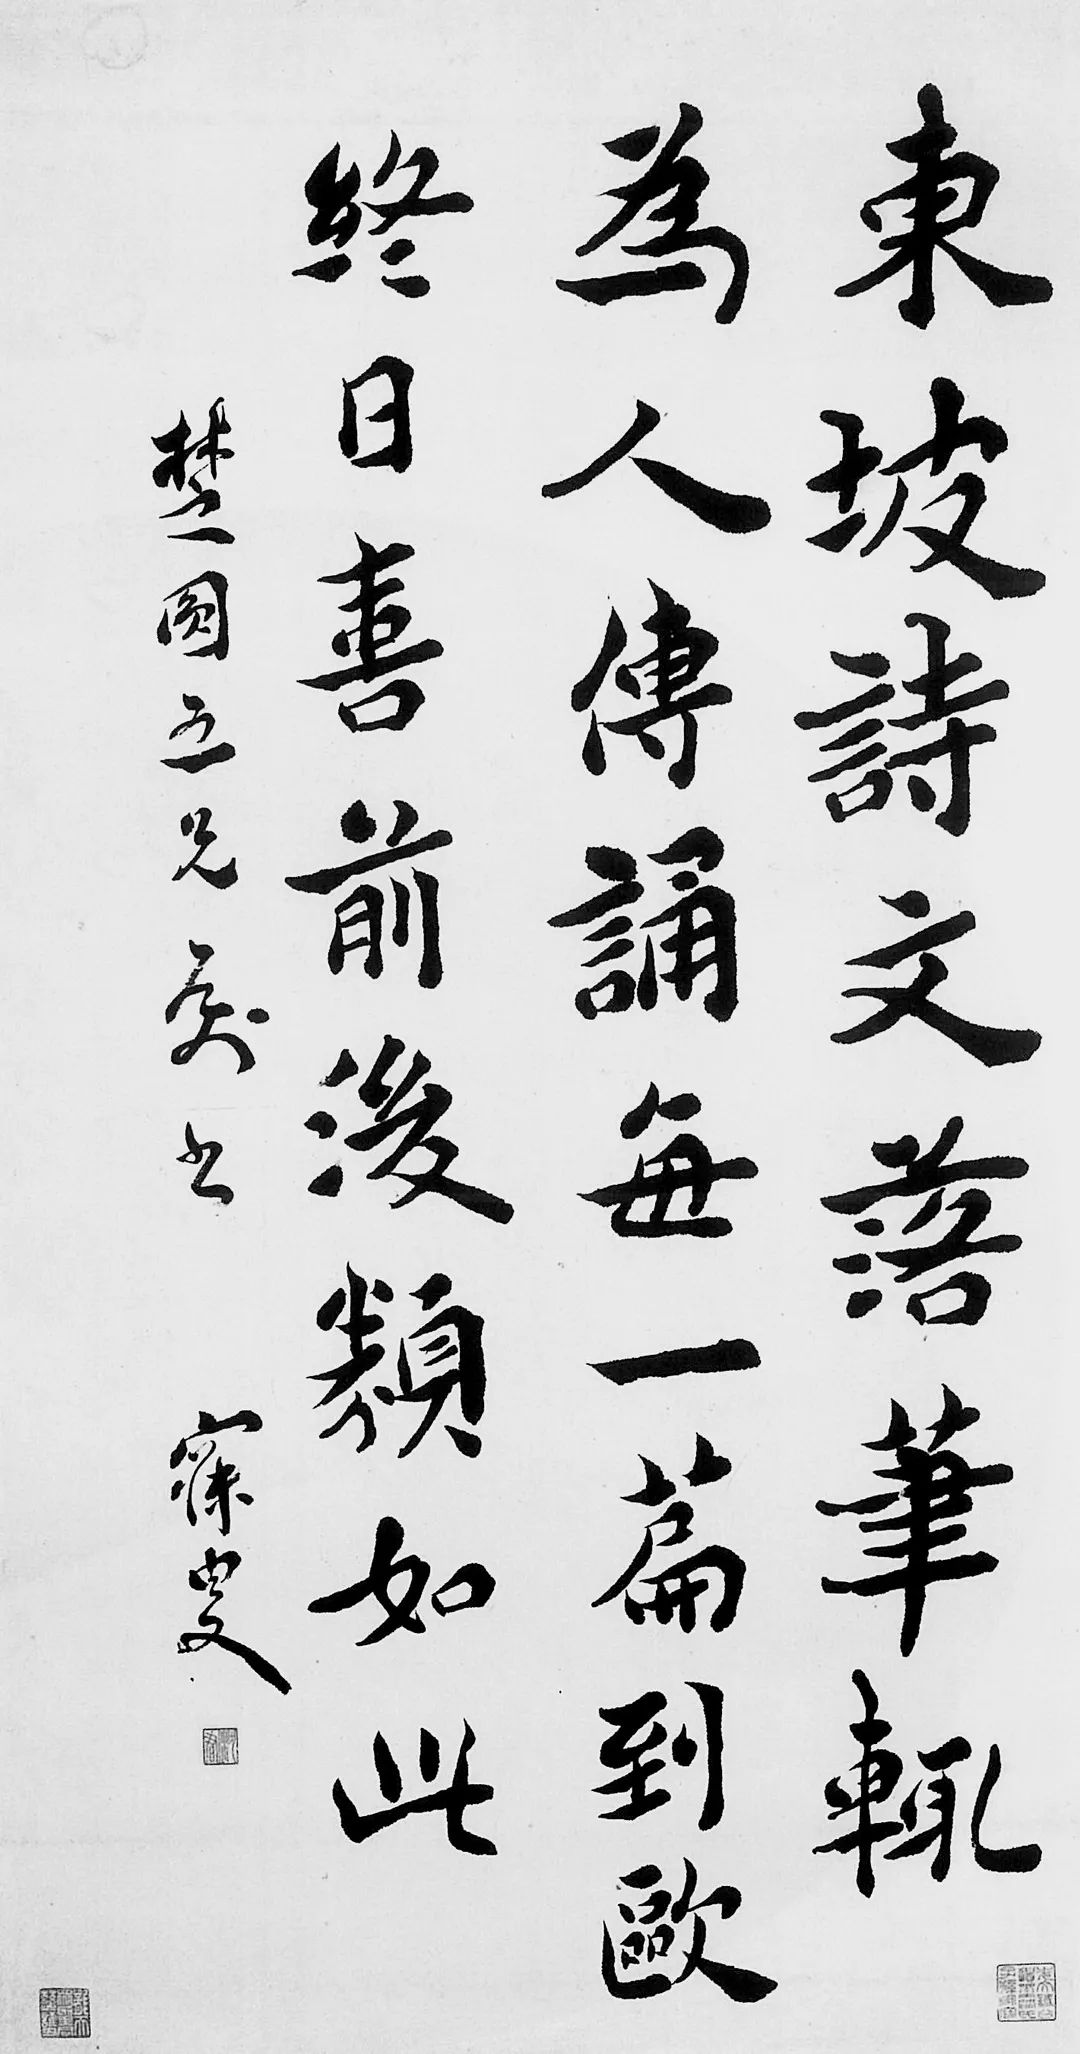 東坡詩文落筆輙
為人傳誦每一篇到歐
終日喜前後類如此
楚園五兄属書
寐叟